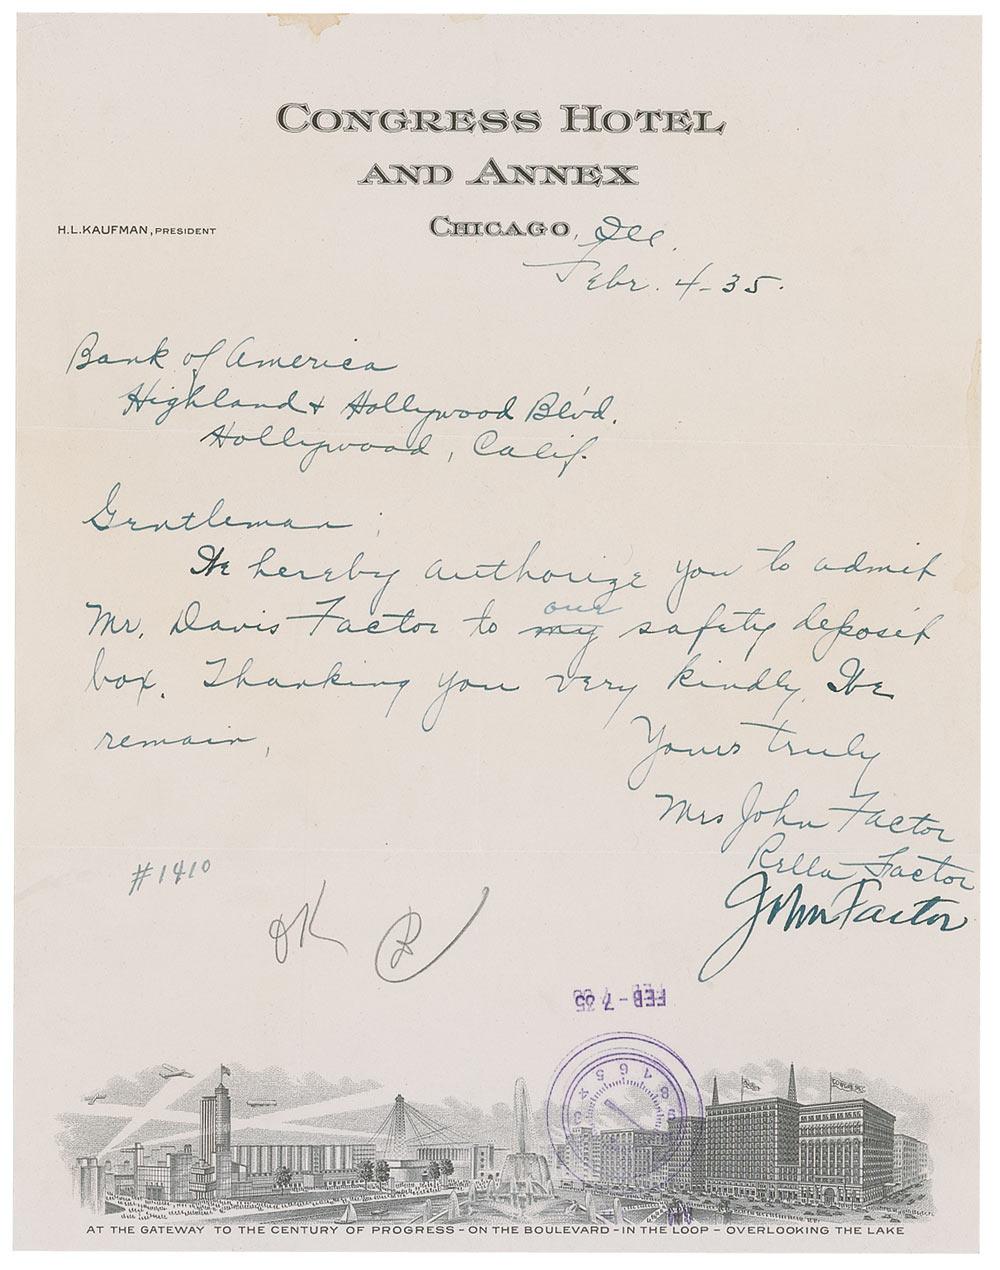 CONGRESS HOTEL
AND ANNEX
H.L.KAUFMAN, PRESIDENT
CHICAGO, Ill.
Febr. 4-35.
Bank of America
Highland & Hollywood Blvd.
Hollywood, Calif.
Gentleman;
We hereby authorize you to admit
our
Mr. Davis Factor to my safety deposit
box. Thanking you very kindly, We
remain,
Yours truly
Mrs John Factor
Rella Factor
John Factor
#1410
OK
FEB - 7 35
CONGRESS
AT THE GATEWAY TO THE CENTURY OF PROGRESS - ON THE BOULEVARD - IN THE LOOP - OVERLOOKING THE LAKE